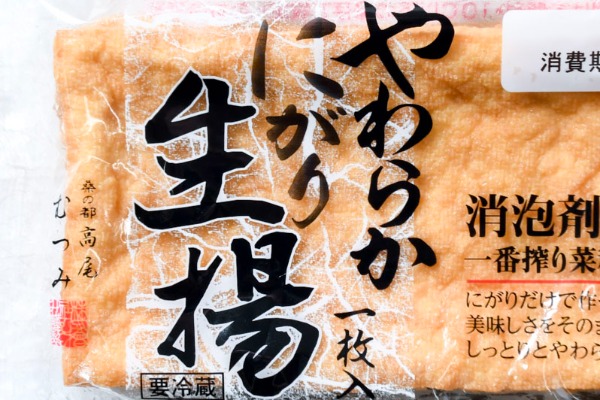 やわらか
にがり
生揚
一枚入
要冷蔵
桑の都 高尾
むつみ
消費期
消泡剤
一番搾り菜
にがりだけで作
美味しさをそのま
しっとりとやわら